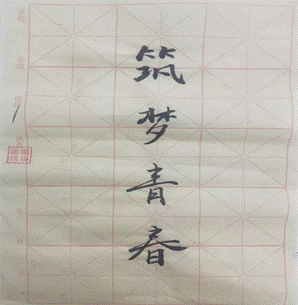 筑梦青春